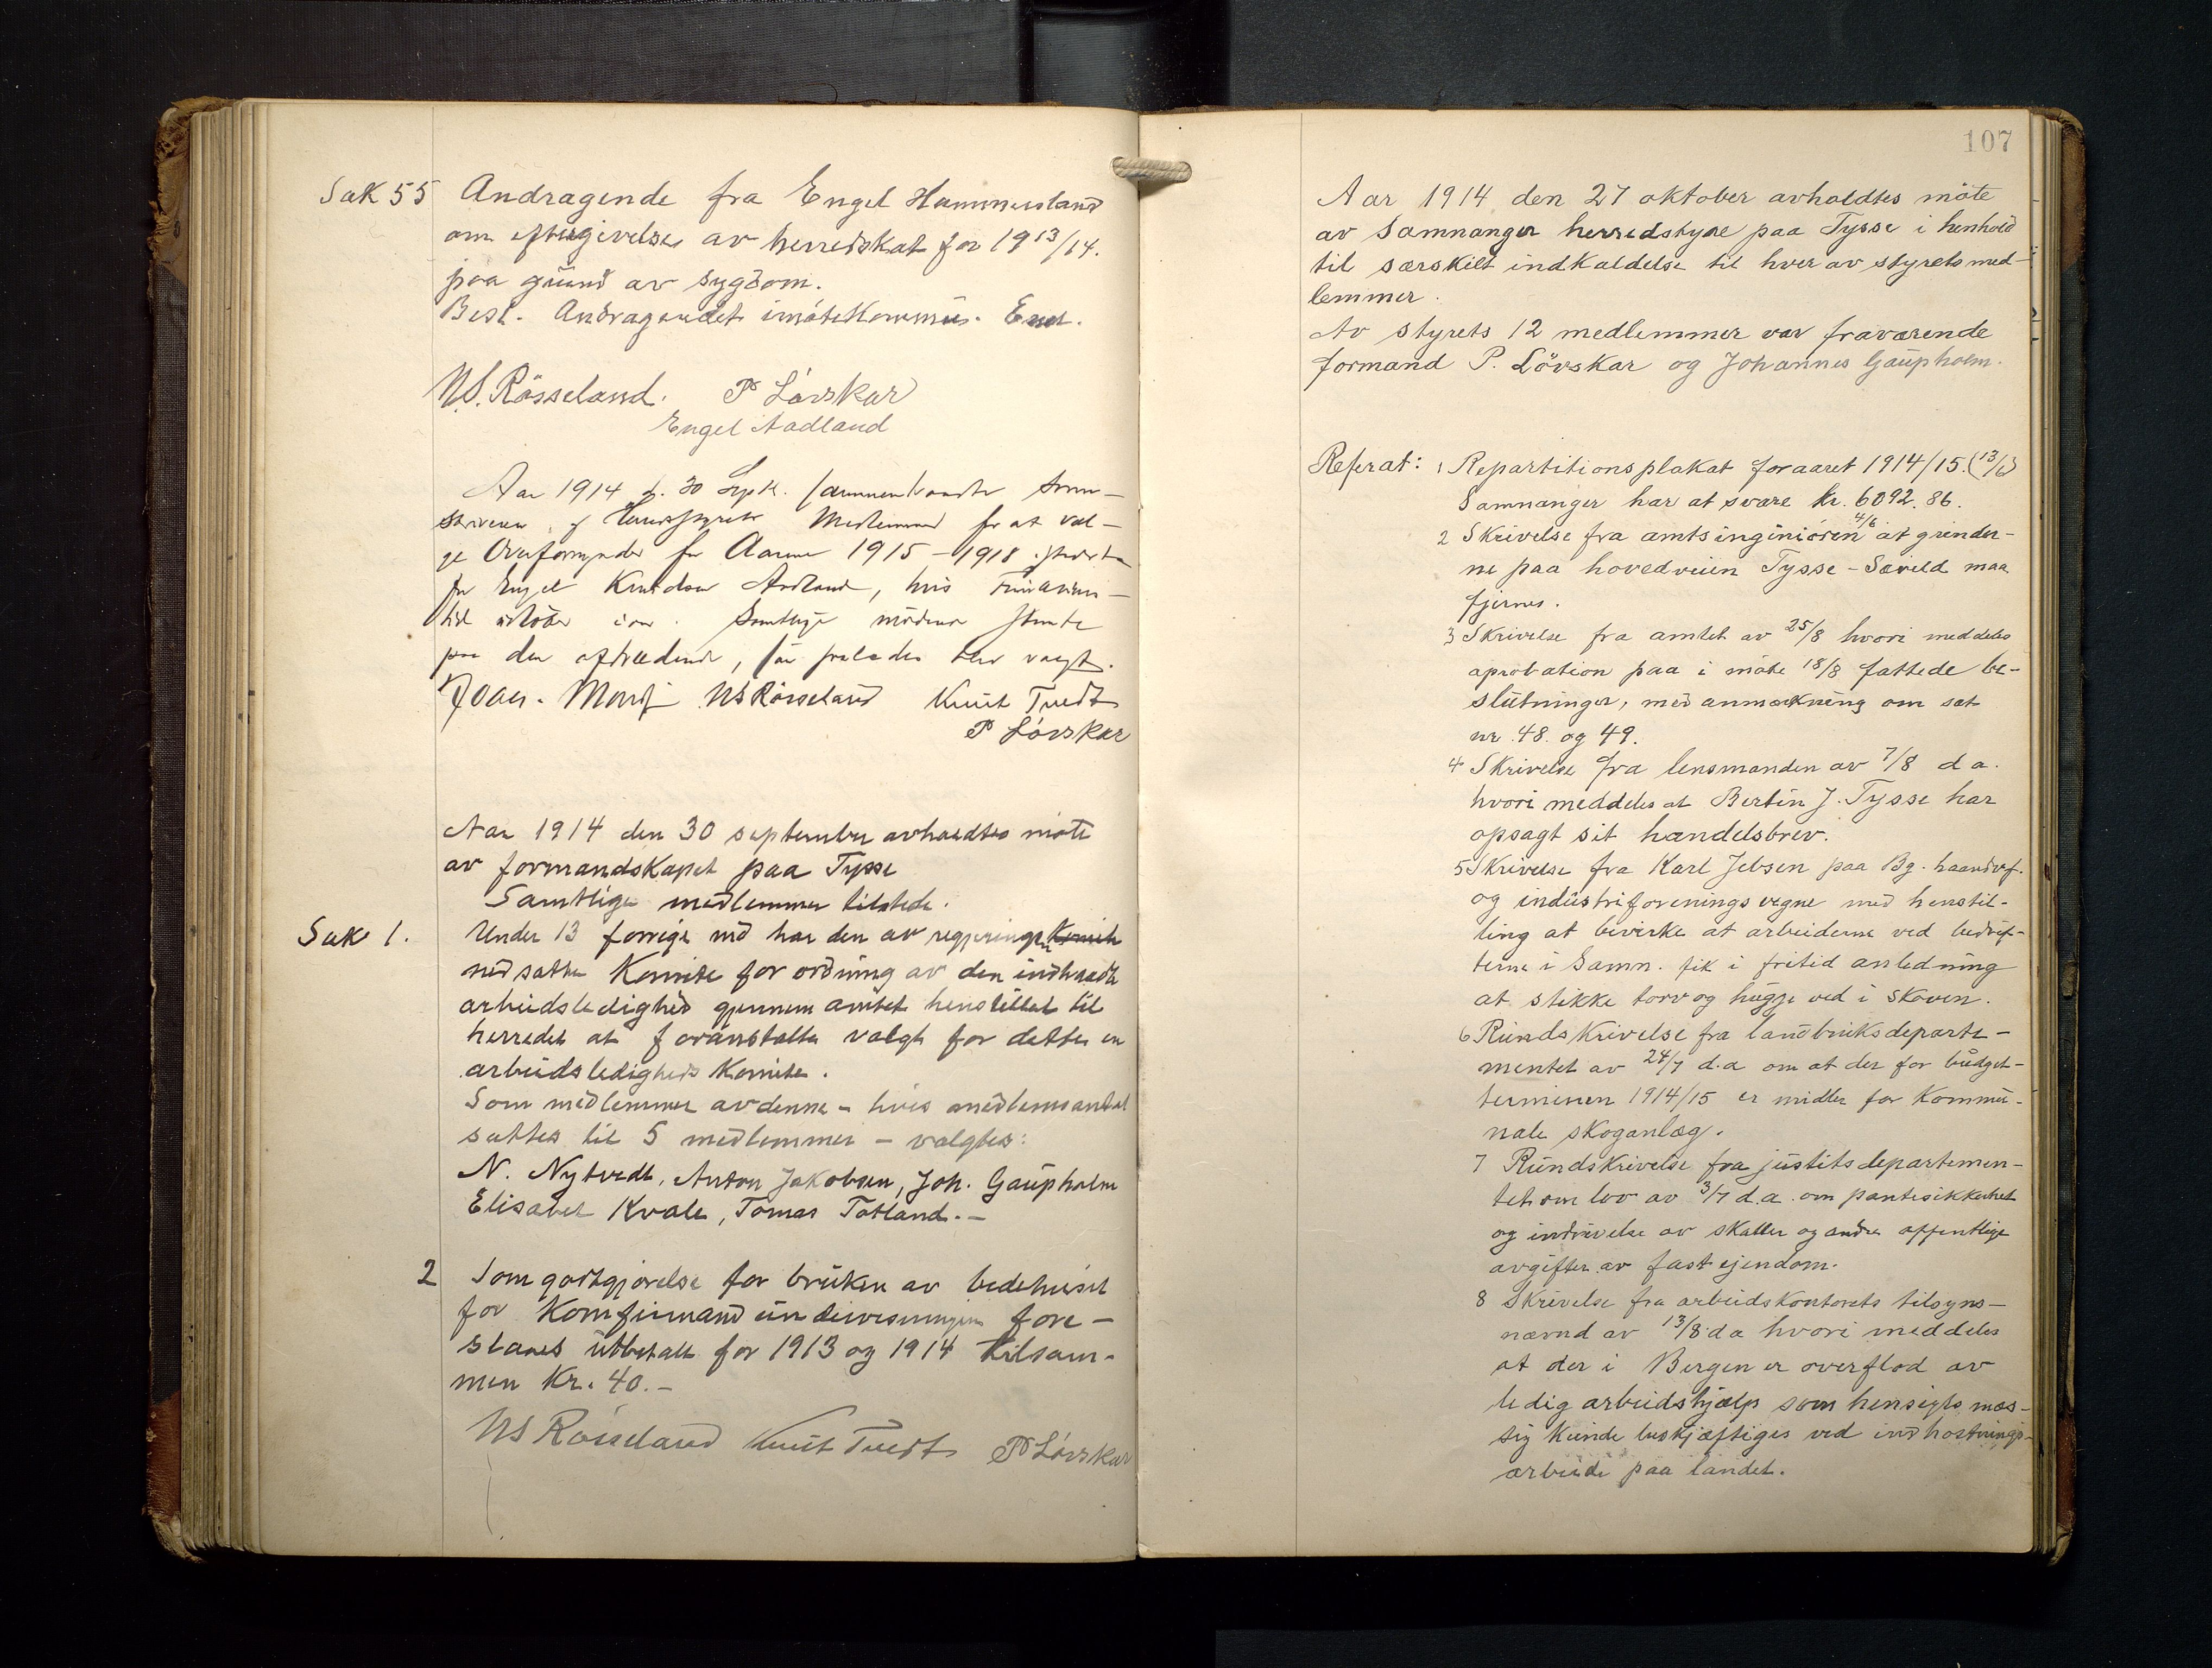 Sak 55 Andragende fra Engel Hammersland
om eftergivelse av herredskat for 1913/14.
paa grund av sygdom.
Besl. Andragendet imøtekommes. Enst.
N.S. Røsseland. P Løvskar
Engel Aadland
Aar 1914 d. 30 Septr. sammentraadte Soren-
skriveren og Herredsstyrets Medlemmer for at væl-
ge Overformynder for Aarene 1915-1918 istedetfor
for Engel Knudsen Aadland, hvis Funktions-
tid utløber iaar. Samtlige mødende stemte
paa den aftrædende, som saaledes blev valgt.
NS Røsseland Knut Tvedt
P Løvskar
Aar 1914 den 30 september avholdtes møte
av formandskapet paa Tysse
Samtlige medlemmer tilstede.
Sak 1. Under 13 forrige md har den av regjeringen Komite
nedsatte Komite for ordning av den indtraadte
arbeidsledighed gjennem amtet henstillet til
herredet at foranstalte valgt for dette en
arbeidsledigheds Komite.
Som medlemmer av denne - hvis medlemsantal
sattes til 5 medlemmer - valgtes:
N. Nytvedt, Anton Jakobsen, Joh. Gaupholm
Elisabet Kvale, Tomas Totland.-
2 Som godtgjørelse for bruken av bedehuset
for Komfirmandundervisningen fore-
slaaes utbetalt for 1913 og 1914 tilsam-
men Kr. 40.-
NS Røsseland Knut Tvedt P Løvskar
107
Aar 1914 den 27 oktober avholdtes møte
av Samnanger herredstyre paa Tysse i henhold
til særskilt indkaldelse til hver av styrets med-
lemmer.
Av styrets 12 medlemmer var fraværende
formand P. Lövskar og Johannes Gaupholm.
Referat: 1 Repartitionsplakat for aaret 1914/15. (13/6)
Samnanger har at svare kr. 6092.86.
2 Skrivelse fra amtsinginiören 4/6 at grinder-
ne paa hovedveien Tysse - Sæveld maa
fjernes.
3 Skrivelse fra amtet av 25/8 hvori meddeles
aprobation paa i møte 18/8 fattede be-
slutninger, med anmærkning om sak
nr. 48. og 49.
4 Skrivelse fra lensmanden av 7/8 d a.
hvori meddeles at Bertin J. Tysse har
opsagt sit handelsbrev.
5 Skrivelse fra Karl Jebsen paa Bg. haandvf.
og industriforenings vegne med henstil-
ling at bevirke at arbeiderne ved bedrif-
terne i Samn. fik i fritid anledning
at stikke torv og hugge ved i skoven.
6 Rundskrivelse fra landbruksdeparte-
mentet av 24/7 d.a om at der for budget-
terminen 1914/15 er midler for Kommu-
nale skoganlæg.
7 Rundskrivelse fra justitsdepartemen-
tet om lov av 3/7 d.a. om pantesikkerhet
og inddrivelse av skatter og andre offentlige
avgifter av fast ejendom.
8 Skrivelse fra arbeidskontorets tilsyns-
nævnd av 13/8 d a hvori meddeles
at der i Bergen er overflod av
ledig arbeidshjælp som hensigtsmæs-
sig kunde beskjæftiges ved indhøstnings-
arbeide paa landet.